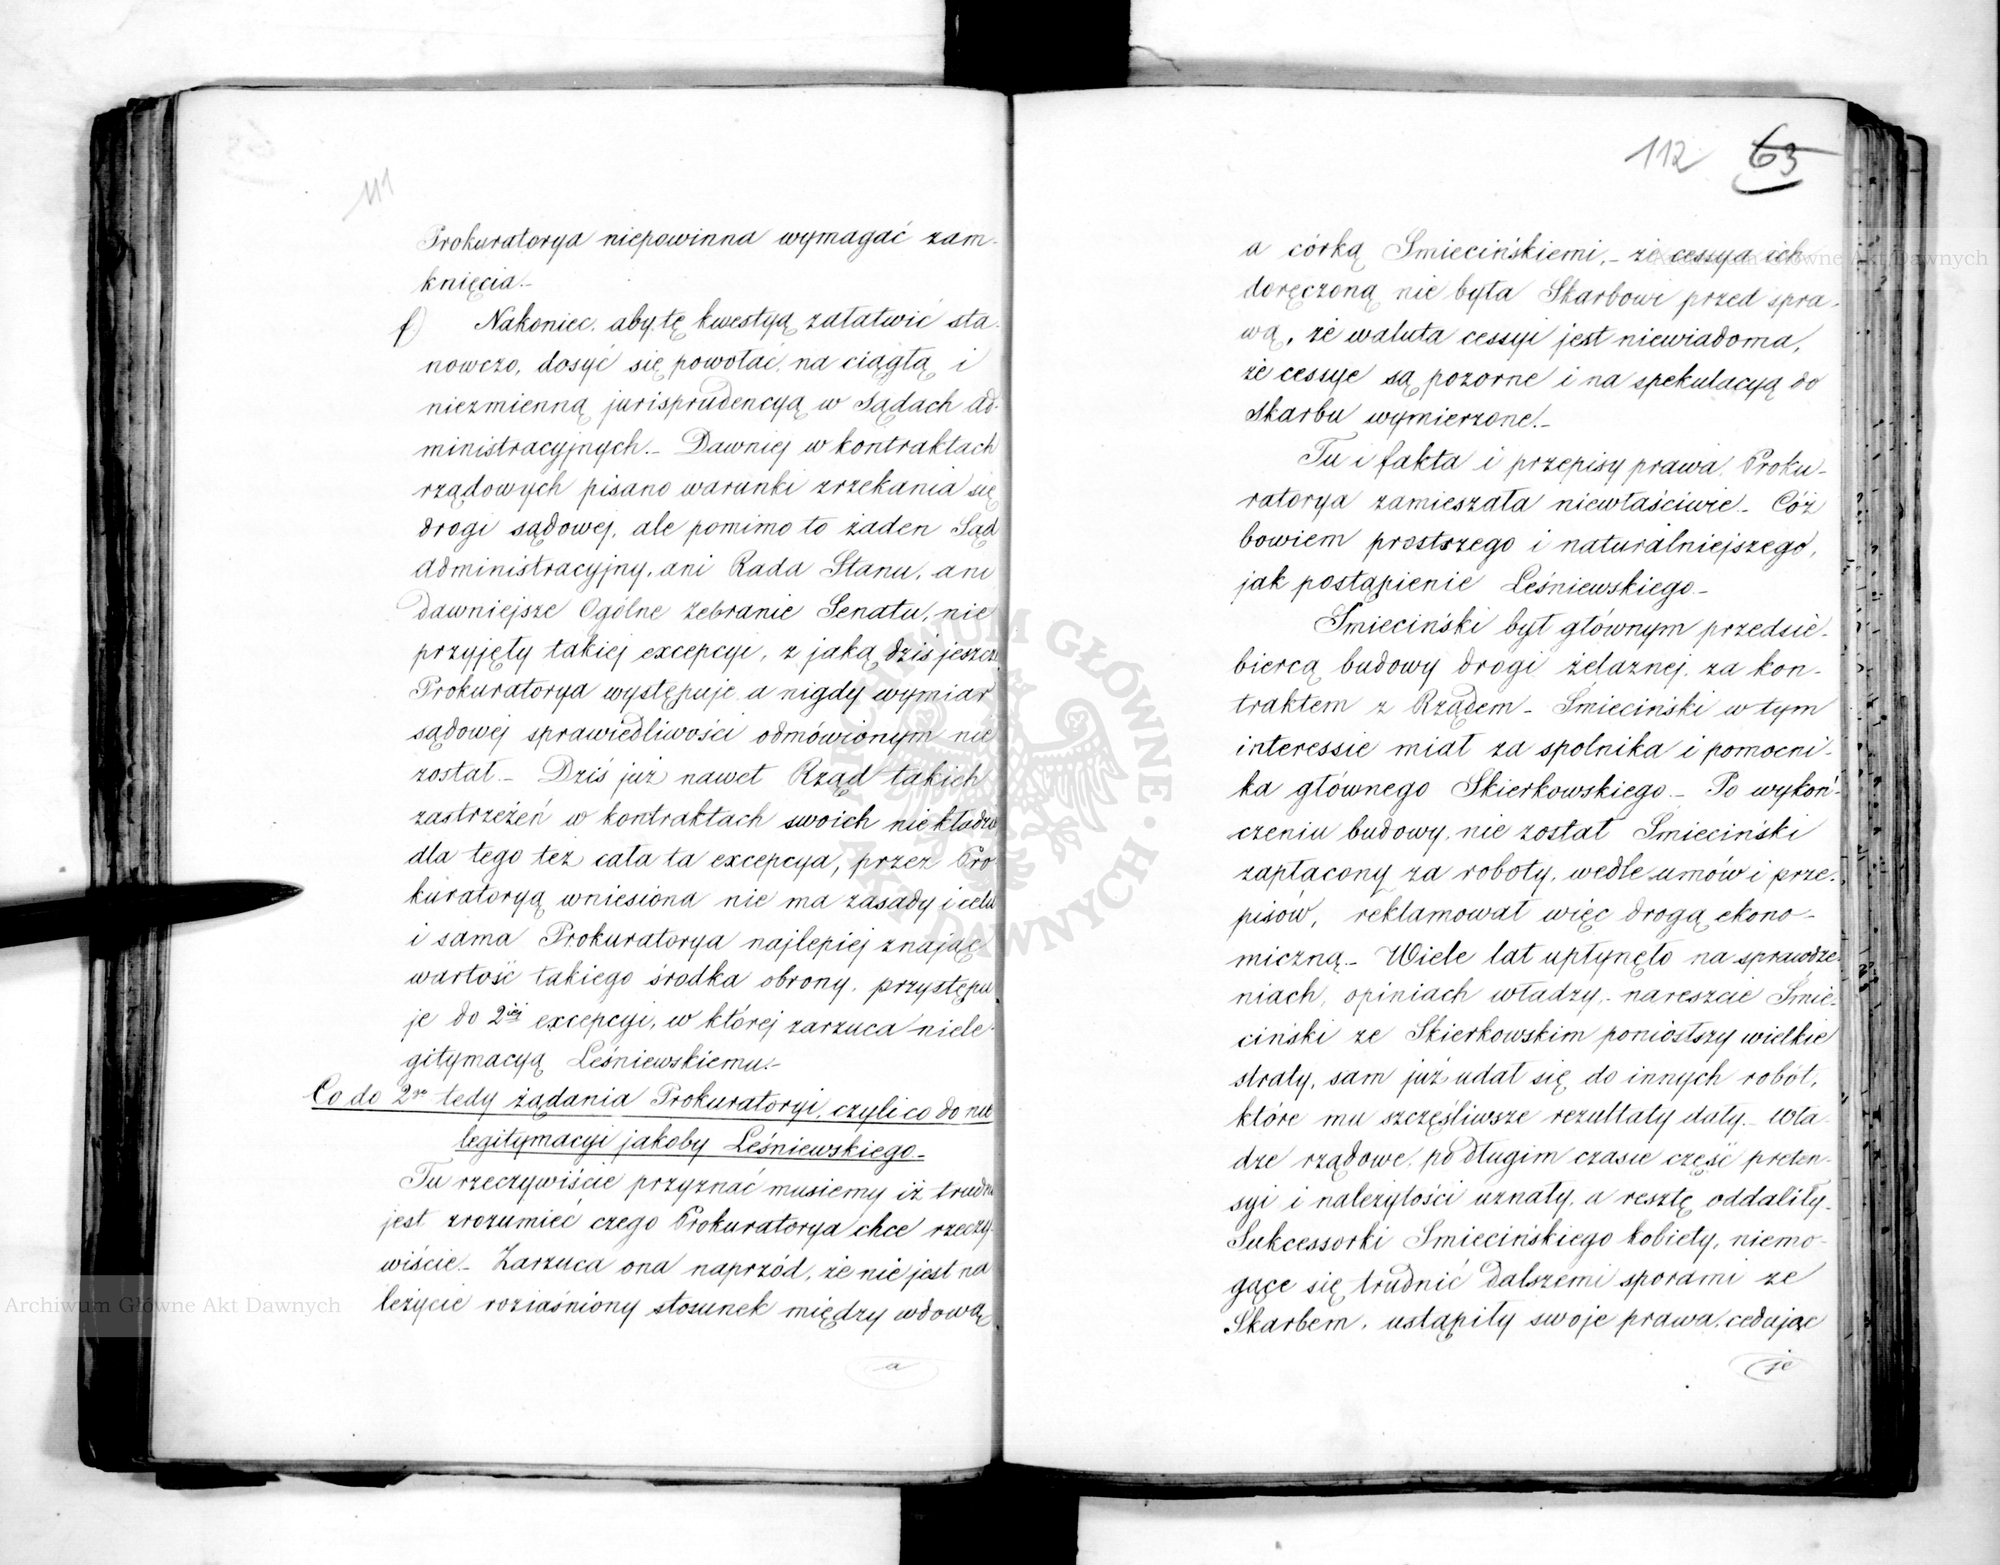 111
Prokuratorya niepowinna wymagać zam-
knięcia.–
f) Nakoniec, aby tę kwestyą załatwić sta-
nowczo, dosyć się powołać, na ciągłą i
niezmienną jurisprudencyą w Sądach Ad-
ministracyjnych.– Dawniej w kontraktach
rządowych pisano warunki zrzekania się
drogi sądowej, ale pomimo to żaden Sąd
Administracyjny, ani Rada Stanu, ani
dawniejsze Ogólne Zebranie Senatu, nie
przyjęły takiej excepcyi, z jaką dziś jeszcze
Prokuratorya występuje a nigdy wymiar
sądowej sprawiedliwości odmówionym nie
został.– Dziś już nawet Rząd takich
zastrzeżeń w kontraktach swoich niekładzie
dla tego też cała ta excepcya, przez Pro-
kuratoryą wniesiona nie ma zasady i celu
i sama Prokuratorya najlepiej znając
wartość takiego środka obrony, przystępu-
je do 2iej excepcyi, w której zarzuca niele-
gitymacyą Leśniewskiemu.–
Co do 2go tedy żądania Prokuratoryi, czyli co do nie
legitymacyi jakoby Leśniewskiego.–
Tu rzeczywiście przyznać musiemy iż trudno
jest zrozumieć czego Prokuratorya chce rzeczy-
wiście.– Zarzuca ona naprzód, że nie jest na
leżycie roziaśniony stosunek między wdową
a
112 63
a córką Smiecińskiemi,– że cessya ich
doręczoną nie była Skarbowi przed spra-
wą, że waluta cessyi jest niewiadoma,
że cessye są pozorne i na spekulacyą do
Skarbu wymierzone.–
Tu i fakta i przepisy prawa Proku-
ratorya zamieszała niewłaściwie.– Cóż
bowiem prostszego i naturalniejszego,
jak postąpienie Leśniewskiego.–
Smieciński był głównym przedsie-
biercą budowy drogi żelaznej, za kon-
traktem z Rządem – Smieciński w tym
interessie miał za spolnika i pomocni-
ka głównego Skierkowskiego.– Po wykoń-
czeniu budowy, nie został Smieciński
zapłacony za roboty, wedle umów i prze-
pisów, reklamował więc drogą ekono-
miczną.– Wiele lat upłynęło na sprawdze-
niach, opiniach władzy,– nareszcie Smie-
ciński ze Skierkowskim poniósłszy wielkie
straty, sam już udał się do innych robót,
które mu szczęśliwsze rezultaty dały.– Wła-
dze rządowe, po długim czasie część preten-
syi i należytości uznały, a resztę oddaliły.–
Sukcessorki Smiecińskiego kobiety, niemo-
gące się trudnić dalszemi sporami ze
Skarbem, ustąpiły swoje prawa, cedując
je
Archiwum Główne Akt Dawnych
Archiwum Główne Akt Dawnych
ARCHIWUM GŁÓWNE AKT DAWNYCH